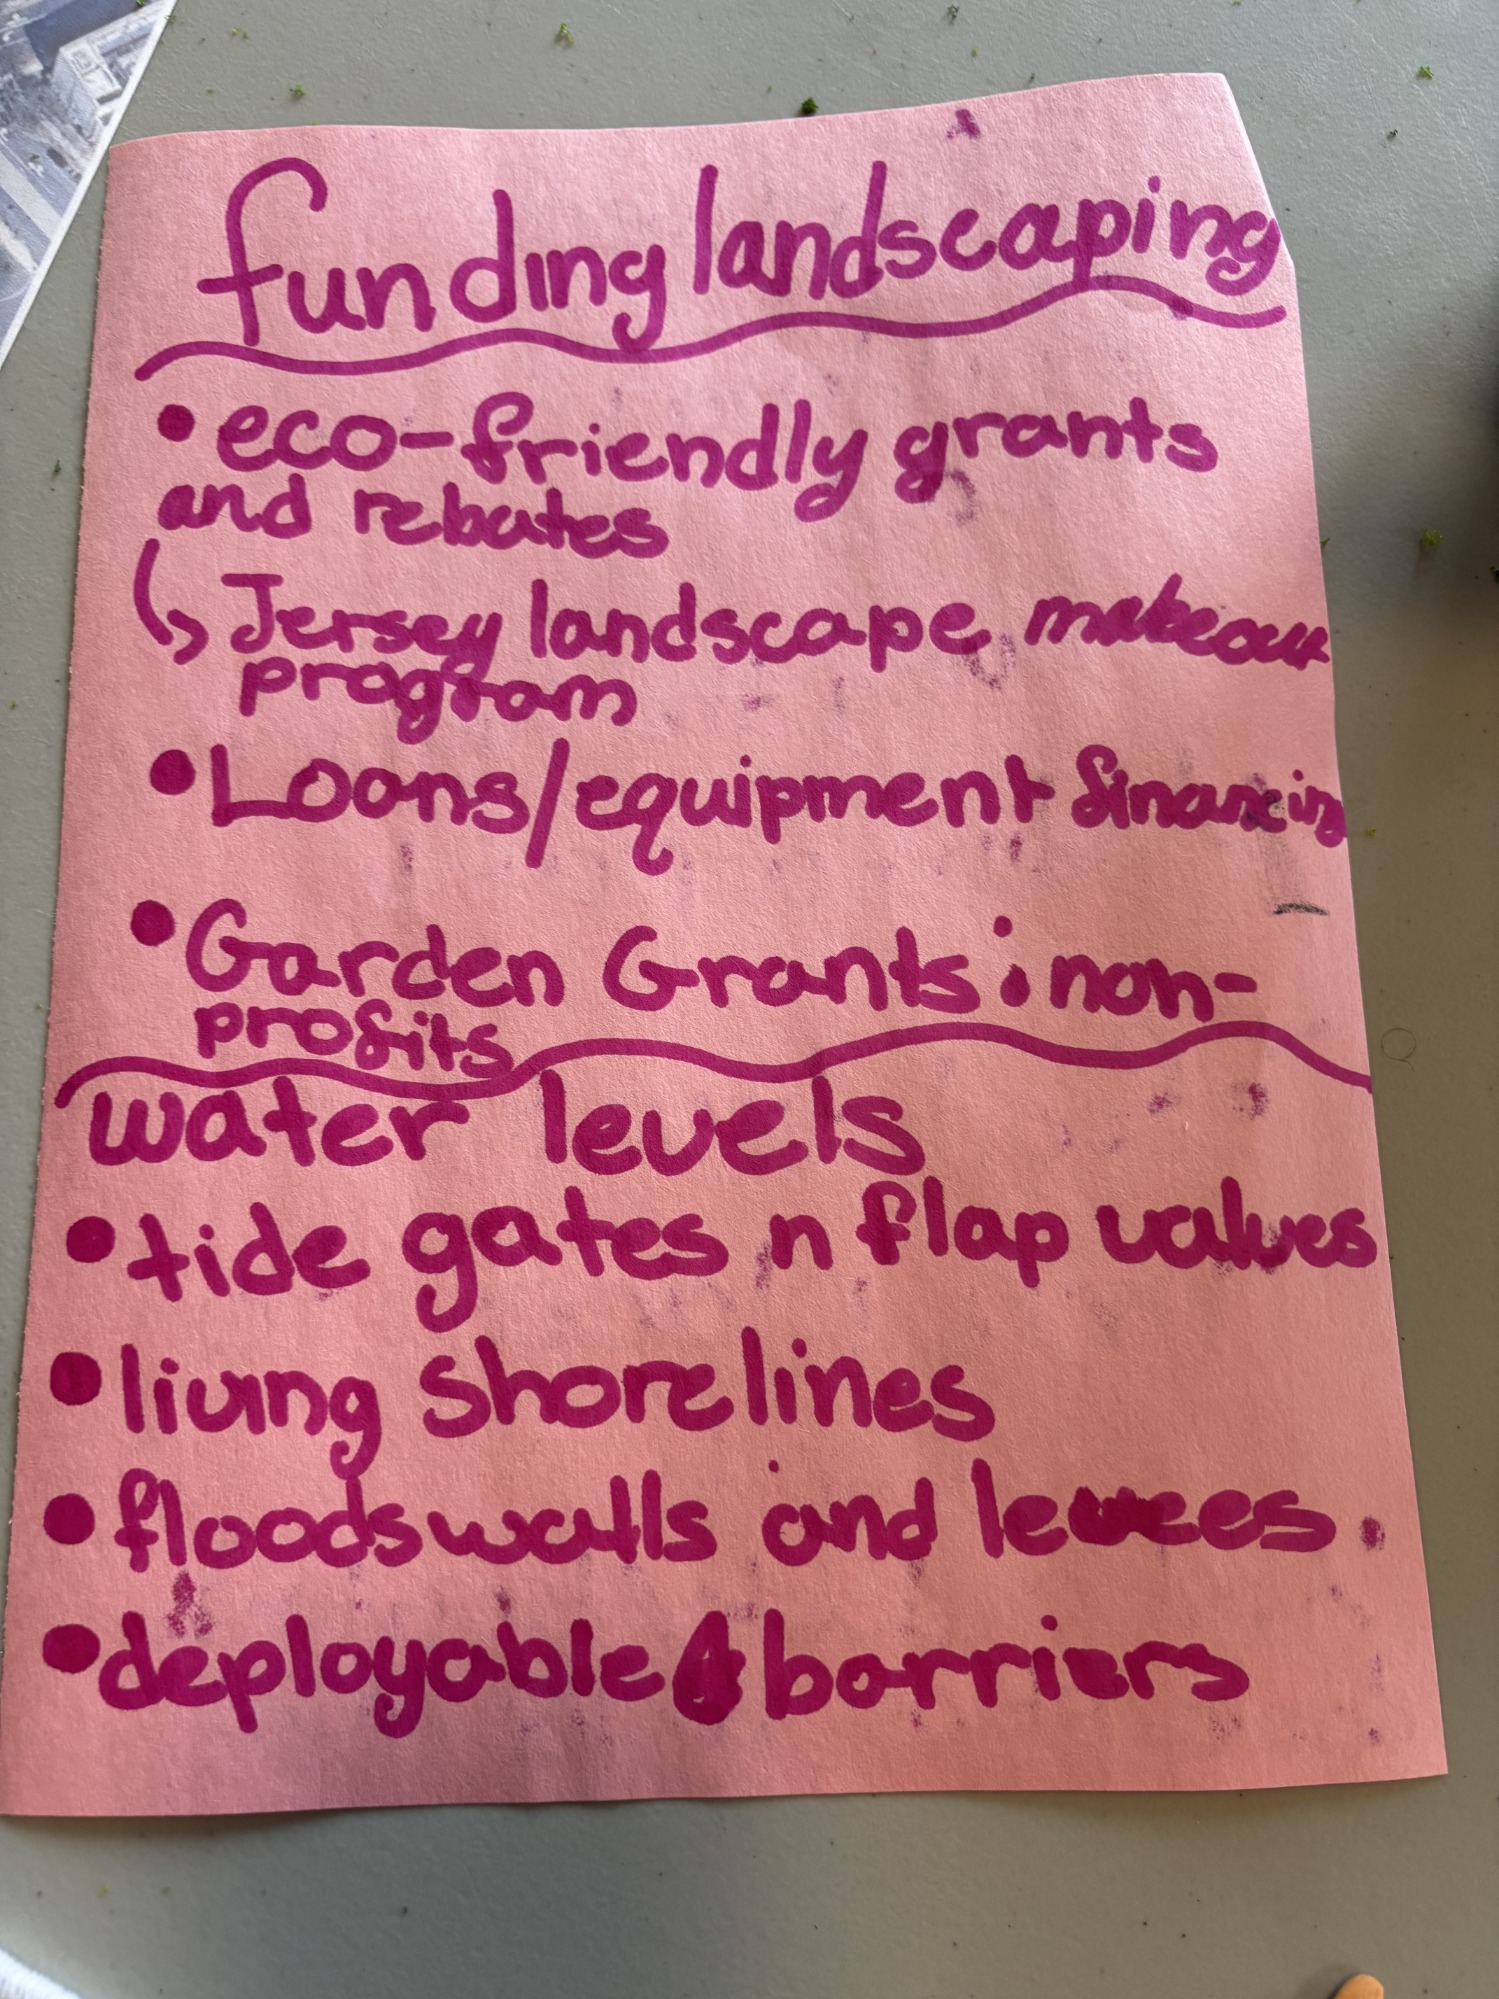 funding landscaping
• eco-friendly grants
and rebates
↳ Jersey landscape
program
• Loans/equipment financing
• Garden Grants: non-
profits
water levels
• tide gates n flap valves
• living shorelines
• floodswalls and levees.
• deployable barriers